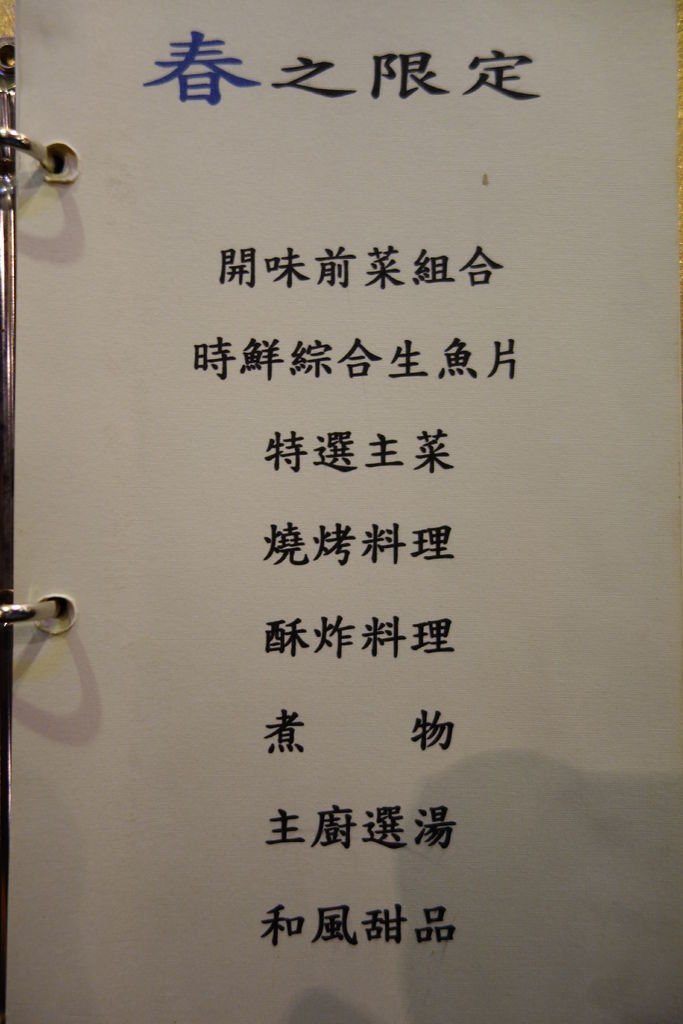 春之限定
開味前菜組合
時鮮綜合生魚片
特選主菜
燒烤料理
酥炸料理
煮 物
主廚選湯
和風甜品